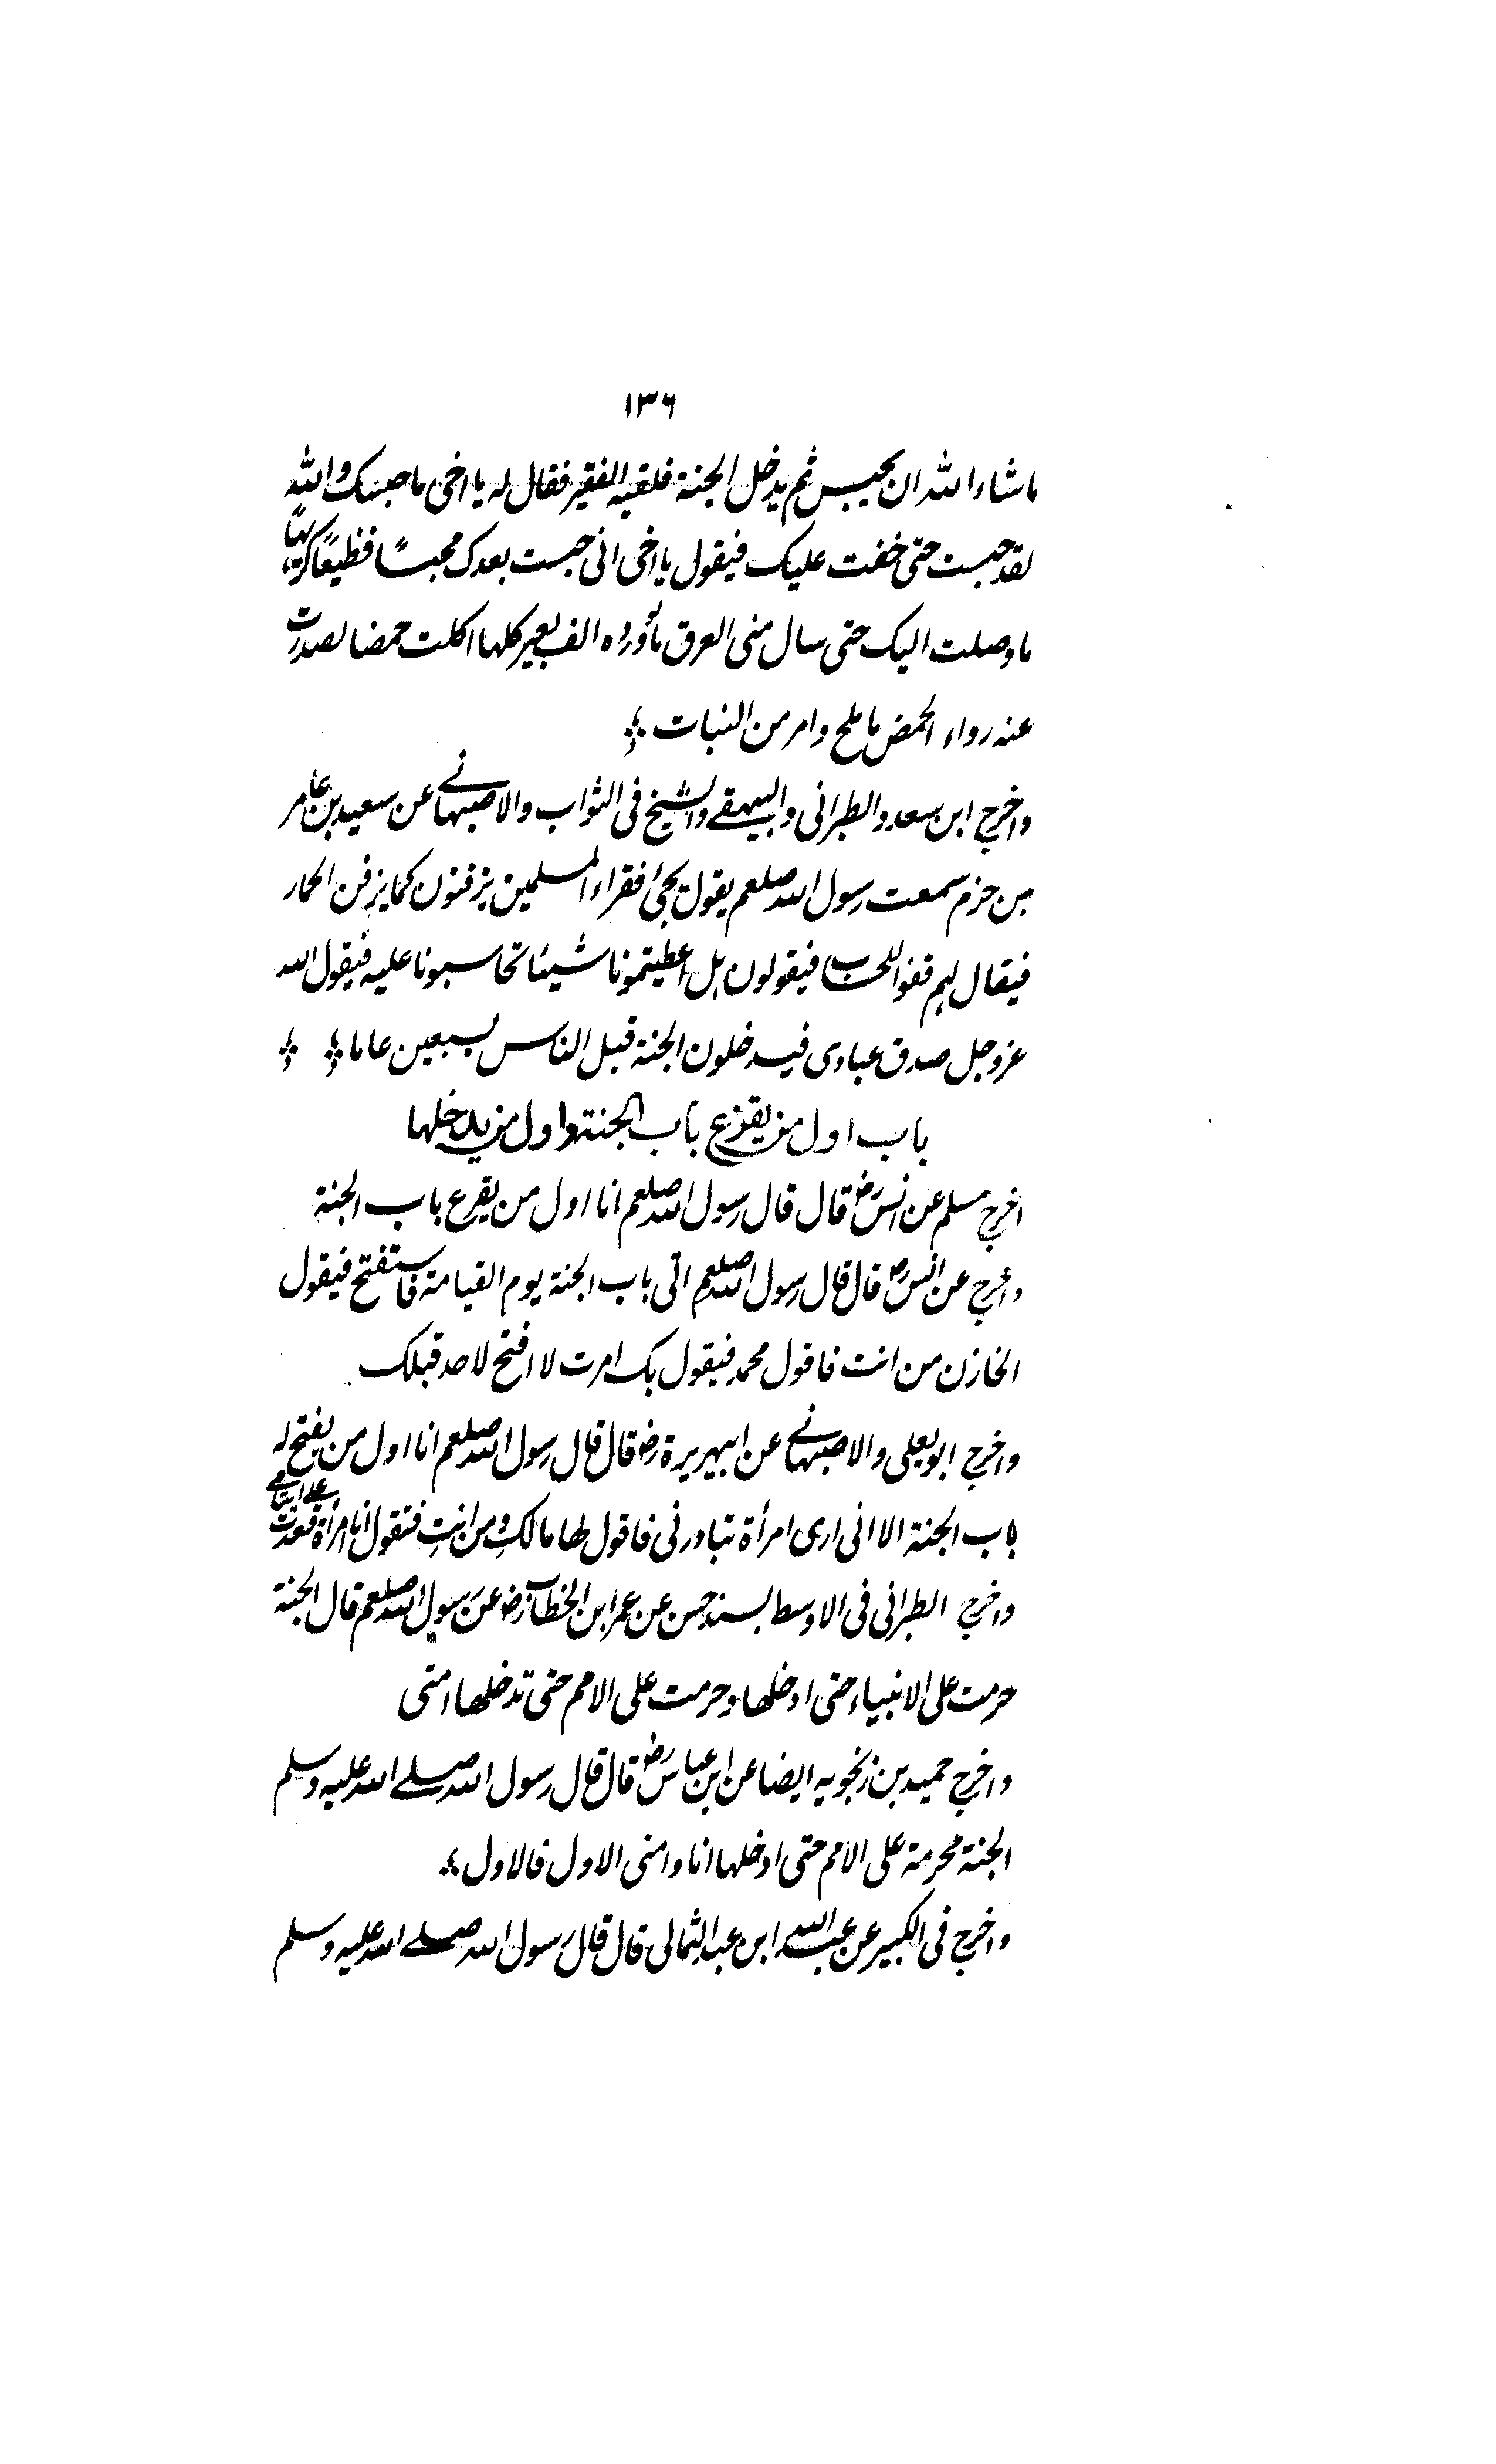 ١٣٦
ماشاء الله ان يحبس ثم يدخل الجنة فلقيه الفقير فقال له يا اخى ما حبسك والله
لقد حبست حتى خفت عليك فيقول يا اخى انى حبست بعدك محبسًا فظيعًا كريهًا
ما وصلت اليك حتى سال منى العرق ما لو ورده الف بعير كلها اكلت حمضا لصدرت
عنه رواء الحمض ما ملح وامر من النبات
واخرج ابن سعد والطبرانى والبيهقے والشيخ فى الثواب والاصبهانے عن سعيد بن عامر
بن حزم سمعت رسول الله صلعم يقول يجئ فقراء المسلمين يزفنون كما يزفن الحمار
فيقال لهم قفوا للحساب فيقولون هل اعطيتمونا شيئا تحاسبونا عليه فيقول الله
عز وجل صدق عبادى فيدخلون الجنة قبل الناس بسبعين عاما
باب اول من يقرع باب الجنة واول من يدخلها
اخرج مسلم عن انس رض قال قال رسول الله صلعم انا اول من يقرع باب الجنة
واخرج عن انس رض قال قال رسول الله صلعم اتى باب الجنة يوم القيامة فاستفتح فيقول
الخازن من انت فاقول محمد فيقول بك امرت لا افتح لاحد قبلك
واخرج ابو يعلى والاصبهانے عن ابيهريرة رض قال قال رسول الله صلعم انا اول من يفتح له
باب الجنة الا انى ارى امرأة تبادرنى فاقول لها مالكِ ومن انتِ فتقول انا امرأة قعدت على ايتامے
واخرج الطبرانى فى الاوسط بسند حسن عن عمر ابن الخطاب رض عن رسول الله صلعم قال الجنة
حرمت على الانبياء حتى ادخلها وحرمت على الامم حتى تدخلها امتى
واخرج حميد بن زنجويه ايضا عن ابن عباس رض قال قال رسول الله صلے الله عليه وسلم
الجنة محرمة على الامم حتى ادخلها انا وامتى الاول فالاول
واخرج فى الكبير عن عبد الله ابن عبد الثمالى قال قال رسول الله صلے الله عليه وسلم